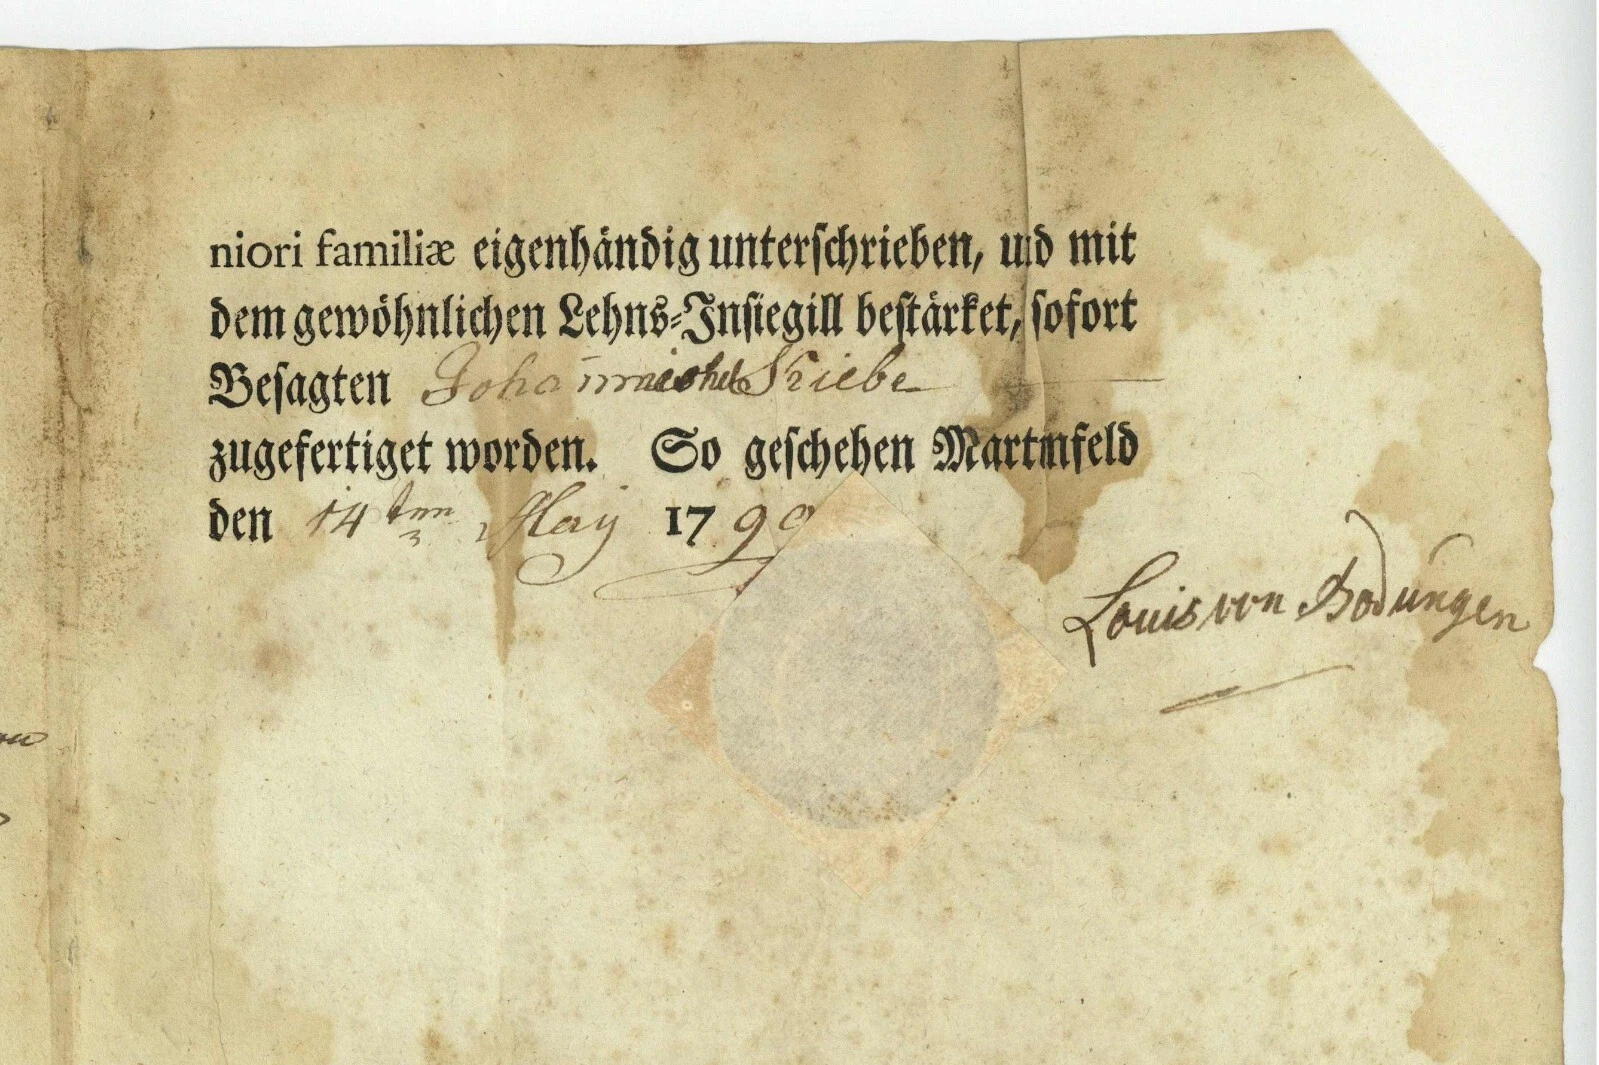 niori familiæ eigenhändig unterschrieben, und mit
dem gewöhnlichen Lehns-Insiegill bestärket, sofort
Besagten Johann Kriebe
zugefertiget worden. So geschehen Martinfeld
den 14ten May 1799
Louis von Bodungen